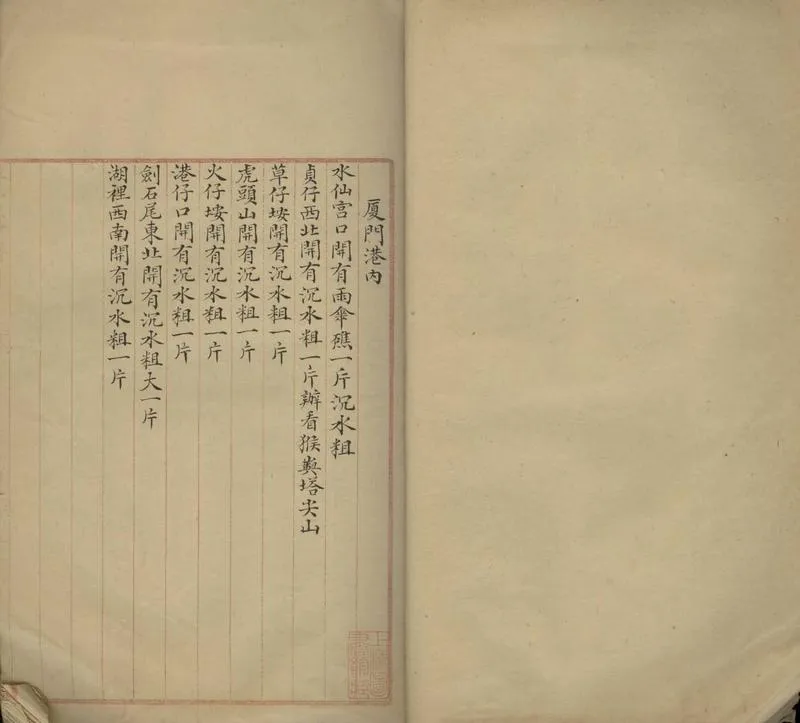 厦門港內
水仙宮口開有雨傘礁一斤沉水粗
貞仔西北開有沉水粗一片辦看猴與塔尖山
草仔垵開有沉水粗一片
虎頭山開有沉水粗一片
火仔垵開有沉水粗一片
港仔口開有沉水粗一片
劍石尾東北開有沉水粗大一片
湖裡西南開有沉水粗一片